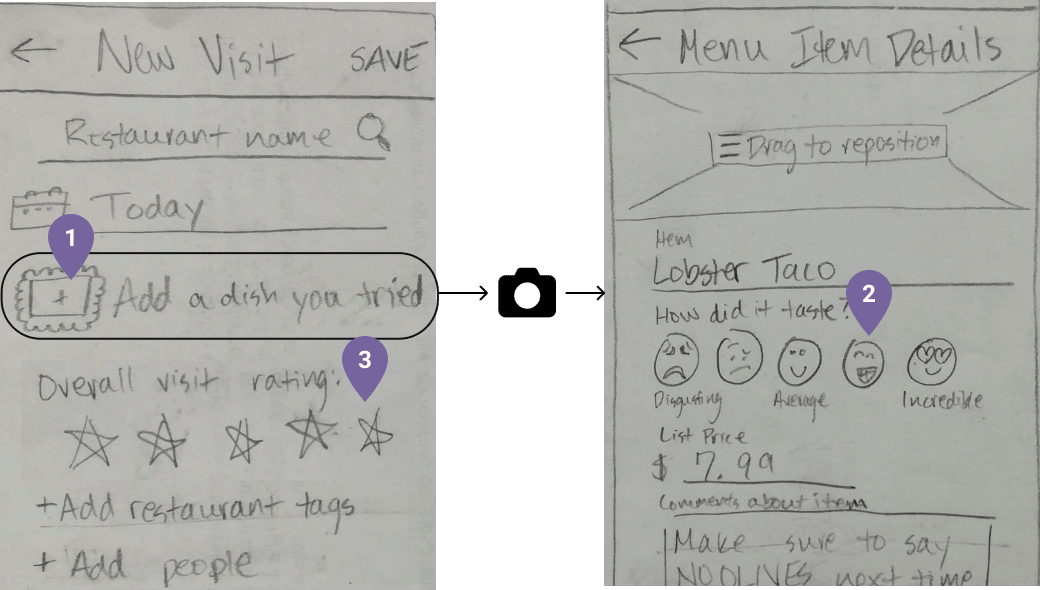 ← New Visit SAVE
Restaurant name
Today
1
+ Add a dish you tried
3
Overall visit rating:
+Add restaurant tags
+ Add people
← Menu Item Details
Drag to reposition
Item
Lobster Taco
2
How did it taste?
Disgusting Average Incredible
List Price
$ 7.99
Comments about item
Make sure to say
NO OLIVES next time